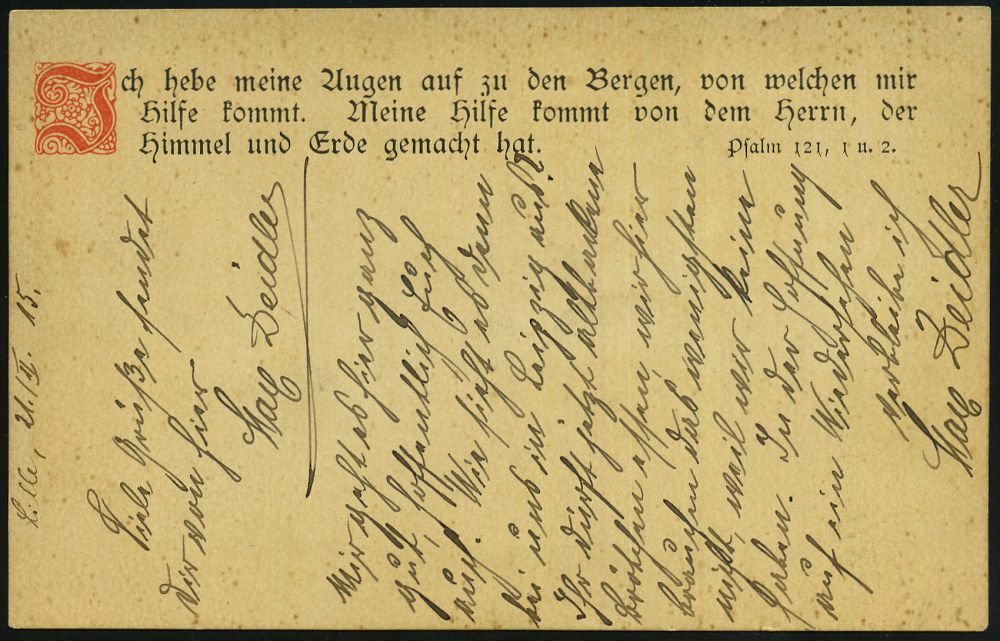 Ich hebe meine Augen auf zu den Bergen, von welchen mir
Hilfe kommt. Meine Hilfe kommt von dem Herrn, der
Himmel und Erde gemacht hat.
Psalm 121, 1 u. 2.
Lille, 21./II. 15.
Viele Grüße sendet
Dir von hier
Max Zeidler
Mir geht es hier ganz
gut, hoffentlich Euch
auch. Wie sieht es denn
bei uns in Leipzig aus?
Ihr dürft jetzt altbacken
Brötchen essen, wir hier
brauchen das wenigstens
nicht, weil wir keine
haben. In der Hoffnung
auf ein Wiedersehen
verbleibe ich
Max Zeidler